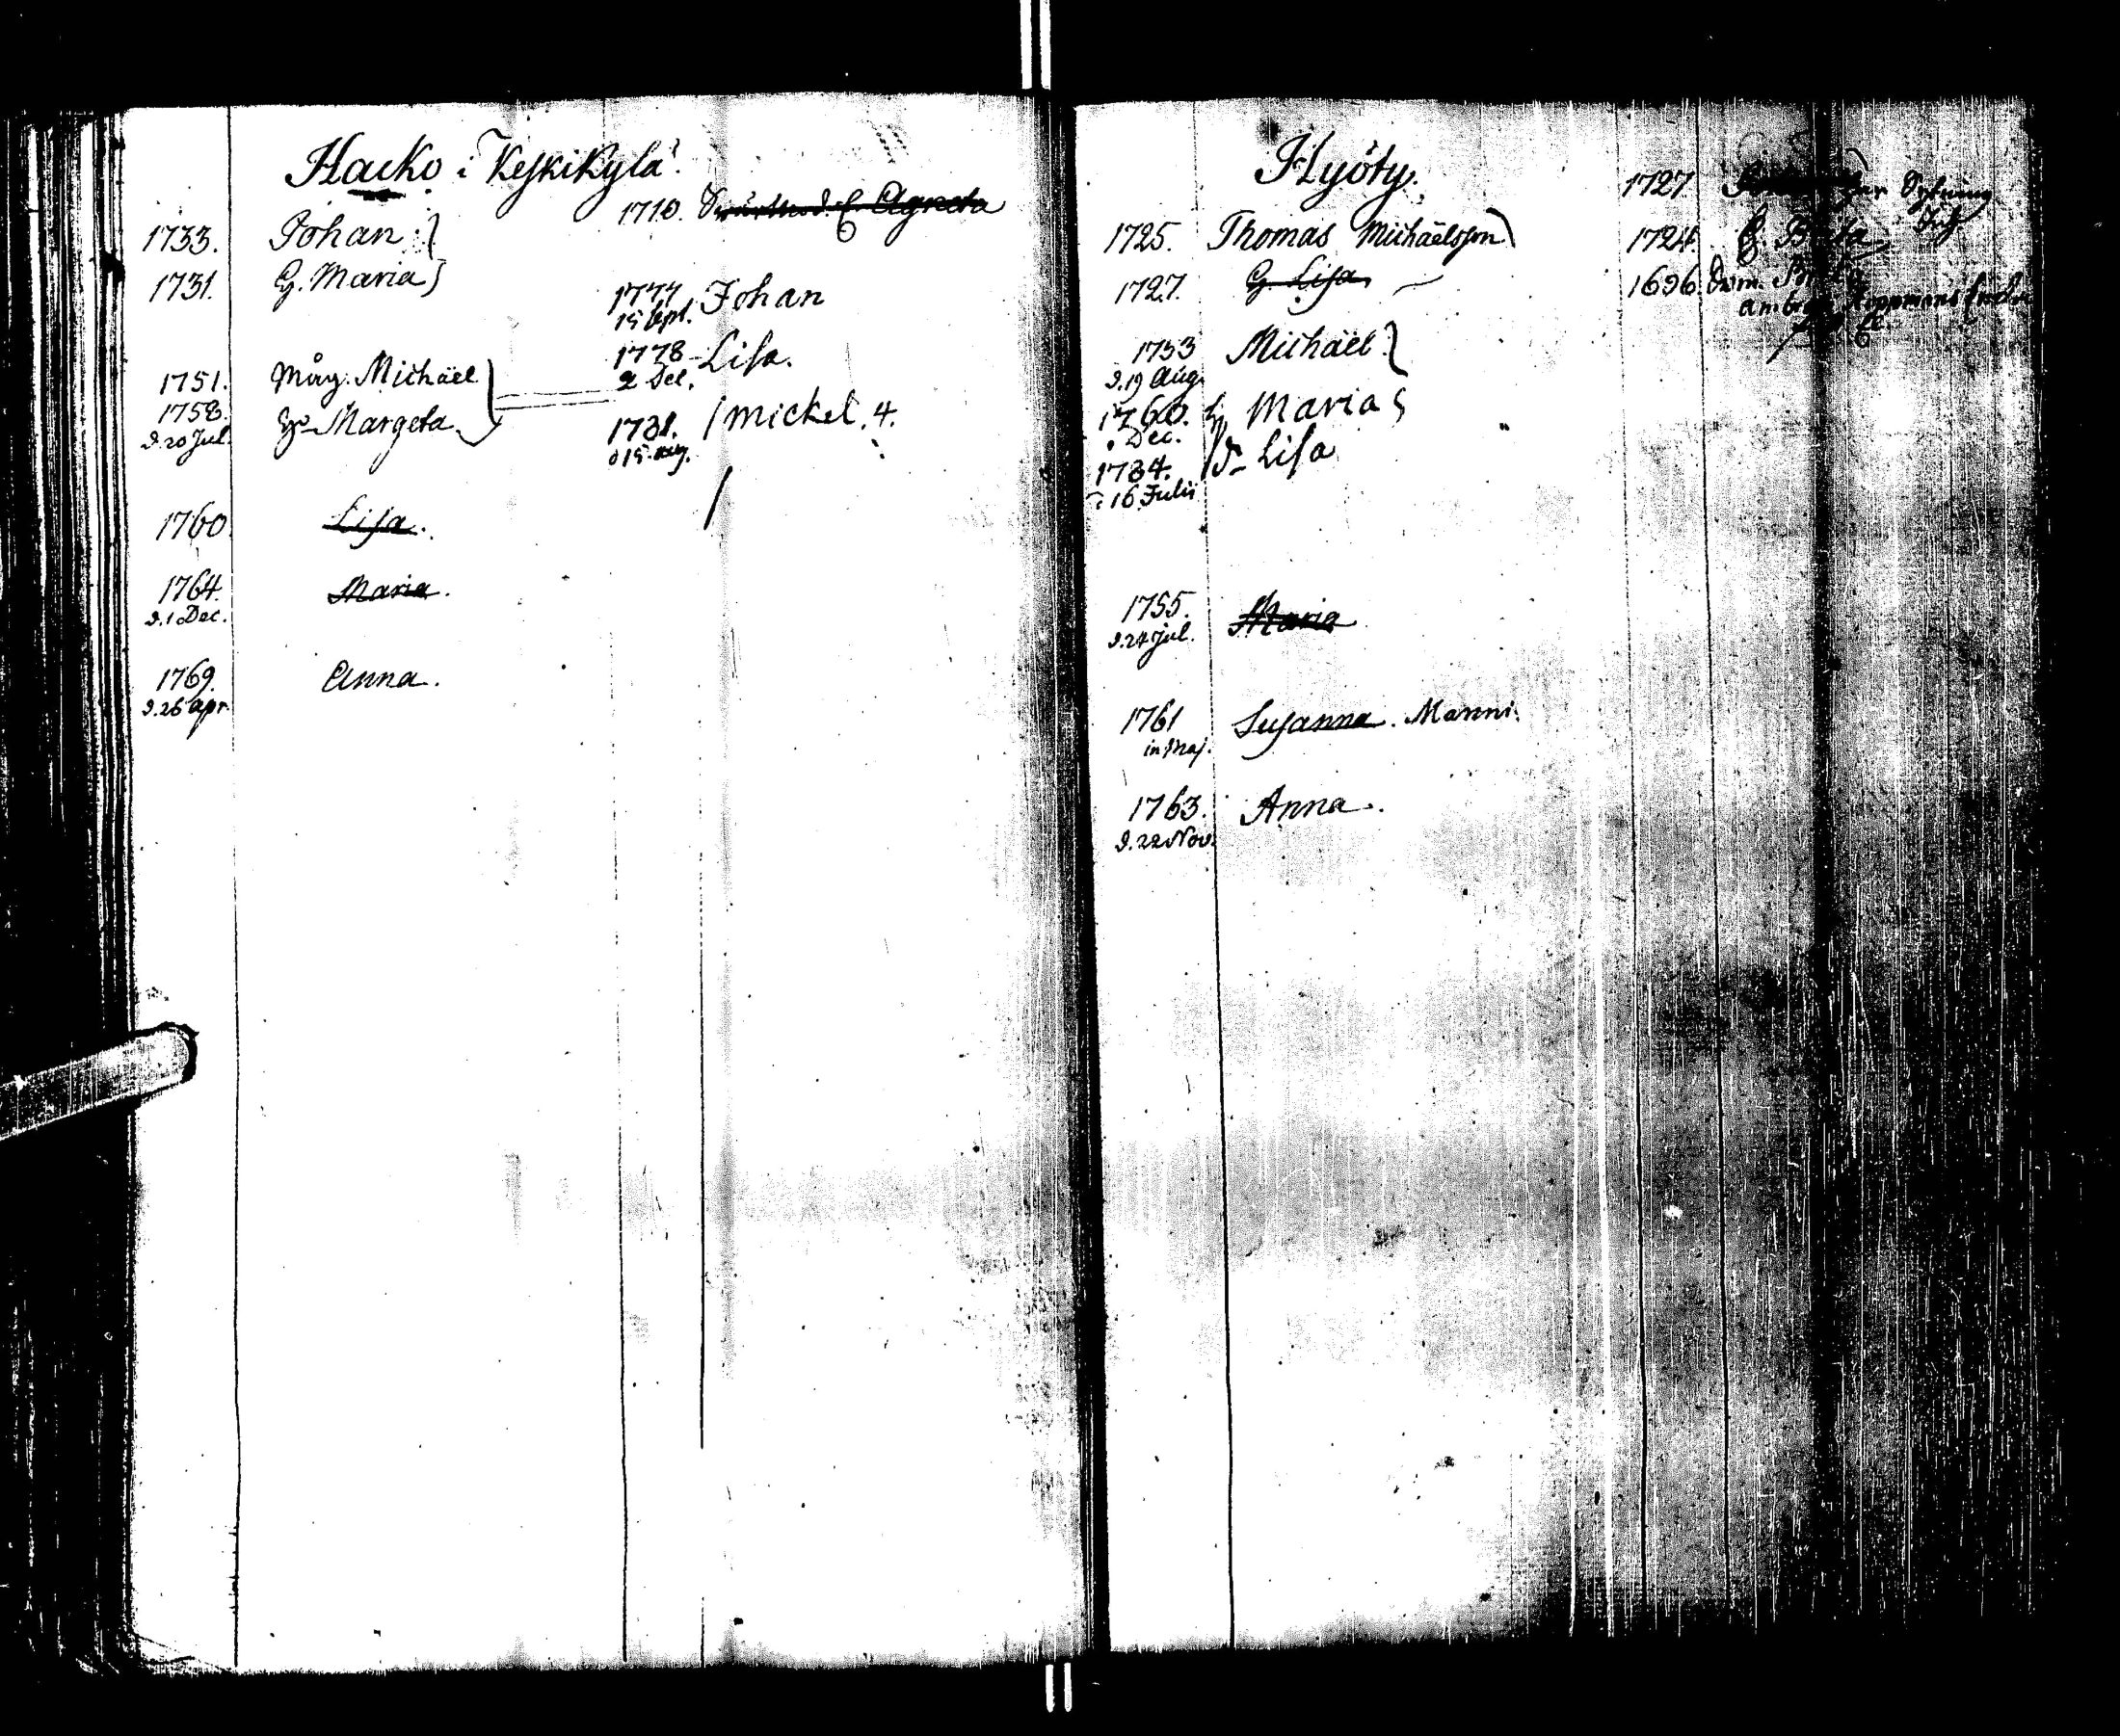 Hacko i Keskikylä
1733. Johan.
1731. H. Maria
1751. Måg. Michaël
1758. H. Margeta
d. 20 Jul.
1760 Lisa.
1764. Maria.
d. 1 Dec.
1769. Anna.
d. 26 apr.
1710. Agneta
1777 Johan
15 Sept.
1778 Lisa.
2 Dec.
1781. Mickel. 4.
d 15 aug.
Hyöty.
1725. Thomas Michaëlsson
1727. H. Lisa
1753 Michaël.
d. 19 Aug
1760. H. Maria
Dec.
1784. d. Lisa
16 Julii
1755. Maria
d. 24 Jul.
1761 Susanna. Manni.
in Maj.
1763. Anna.
d. 22 Nov.
1727
1724
1696